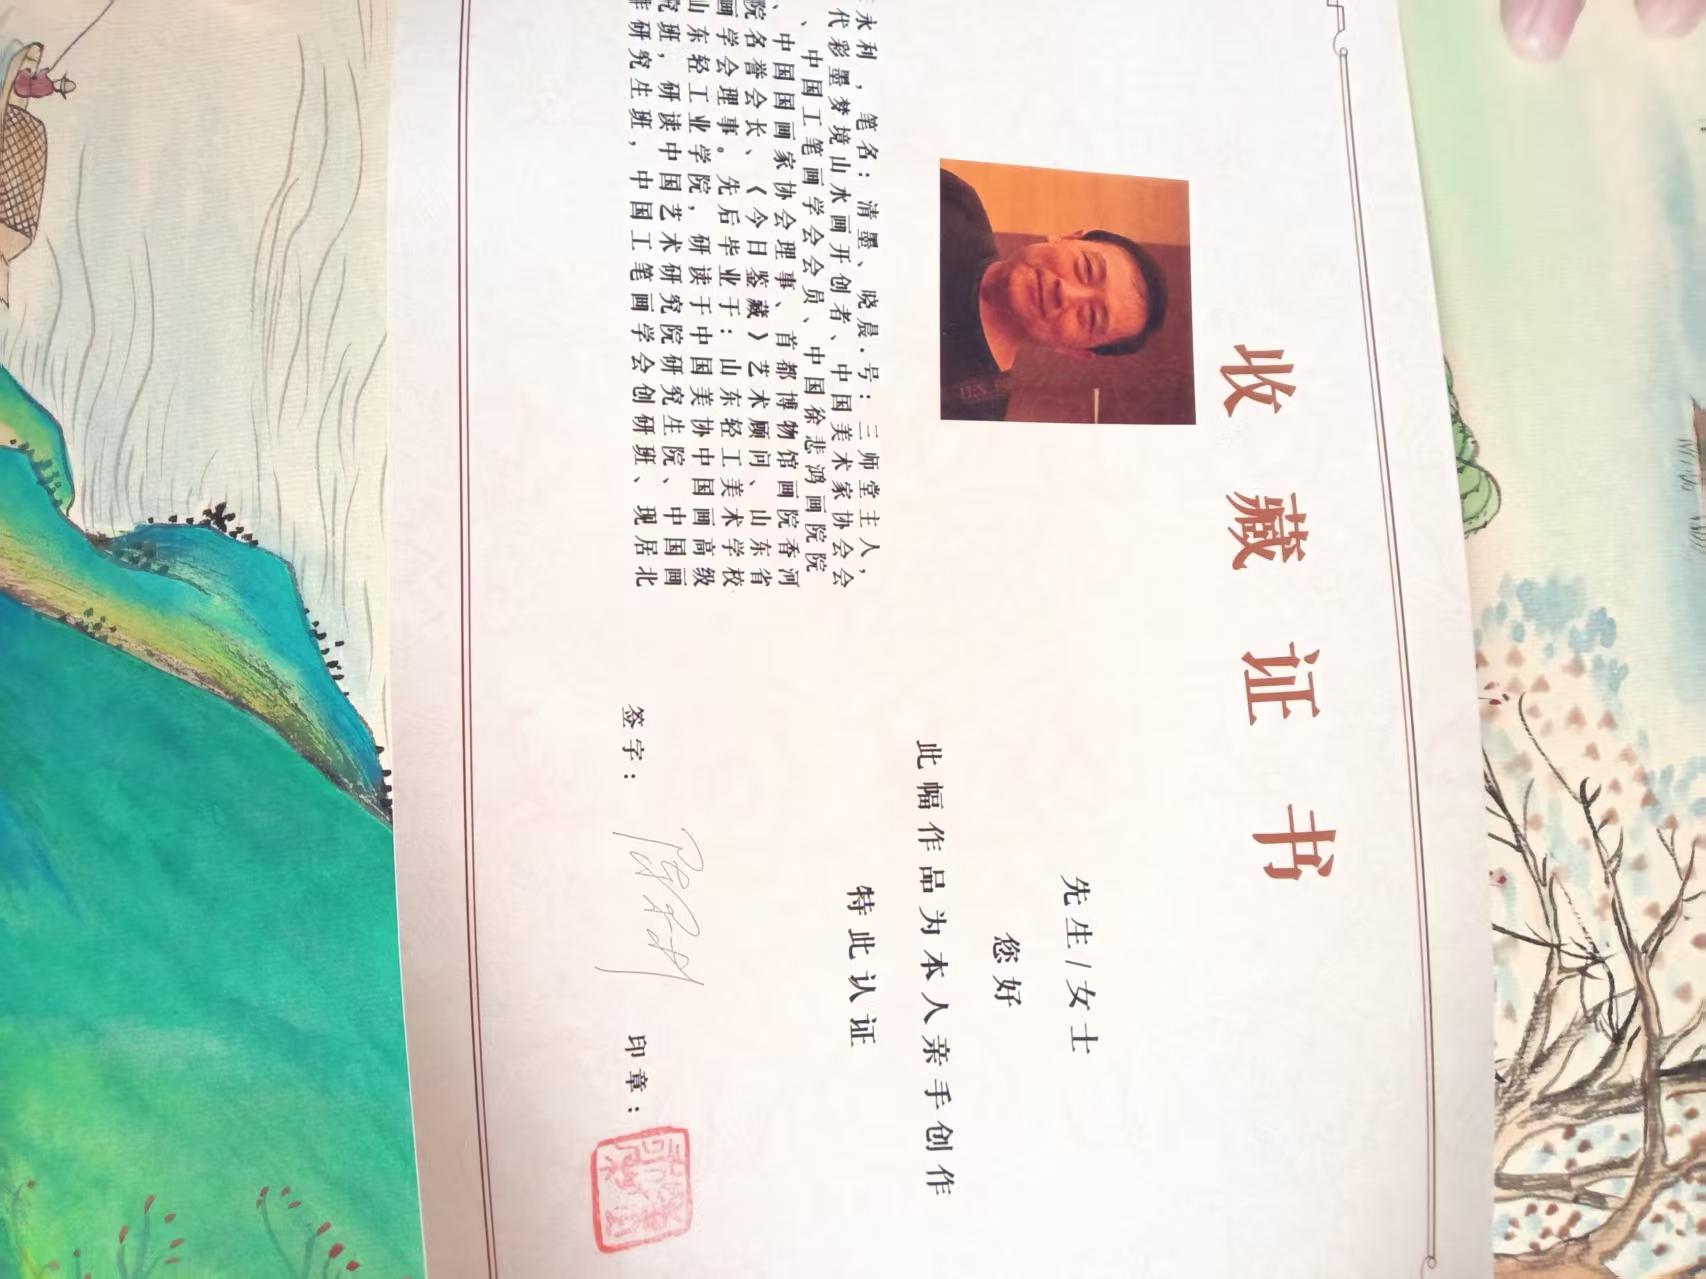 收藏证书
先生/女士
您好
此幅作品为本人亲手创作
特此认证
永利,笔名:清墨、晓晨.号:三师堂主人,
代彩墨梦境山水画开创者、中国美术家协会会
、中国工笔画学会会员、中国徐悲鸿画院院
、中国国画家协会理事、首都博物馆画院香河
院名誉会长、《今日鉴藏》艺术顾问、山东省
画学会理事。先后毕业于:山东轻工美术学校
山东轻工业学院,研读于中国美协中国画高级
究班,研读中国艺术研究院研究生院、中国画
作研究生班,中国工笔画学会创研班、现居北
签字: 印章: